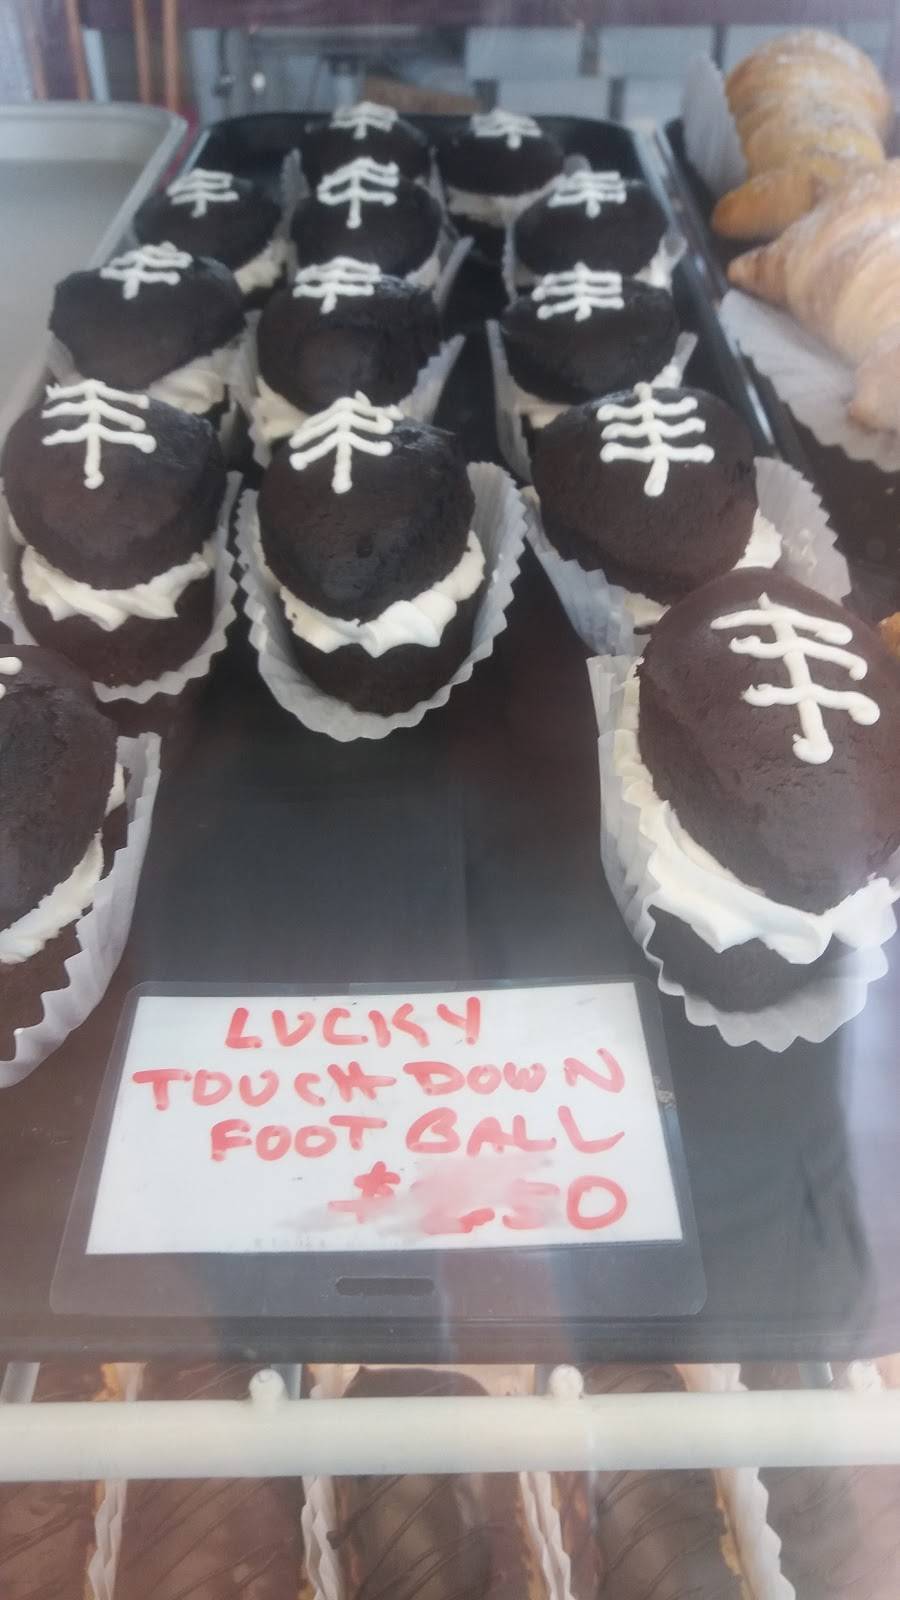 LUCKY
TOUCH DOWN
FOOT BALL